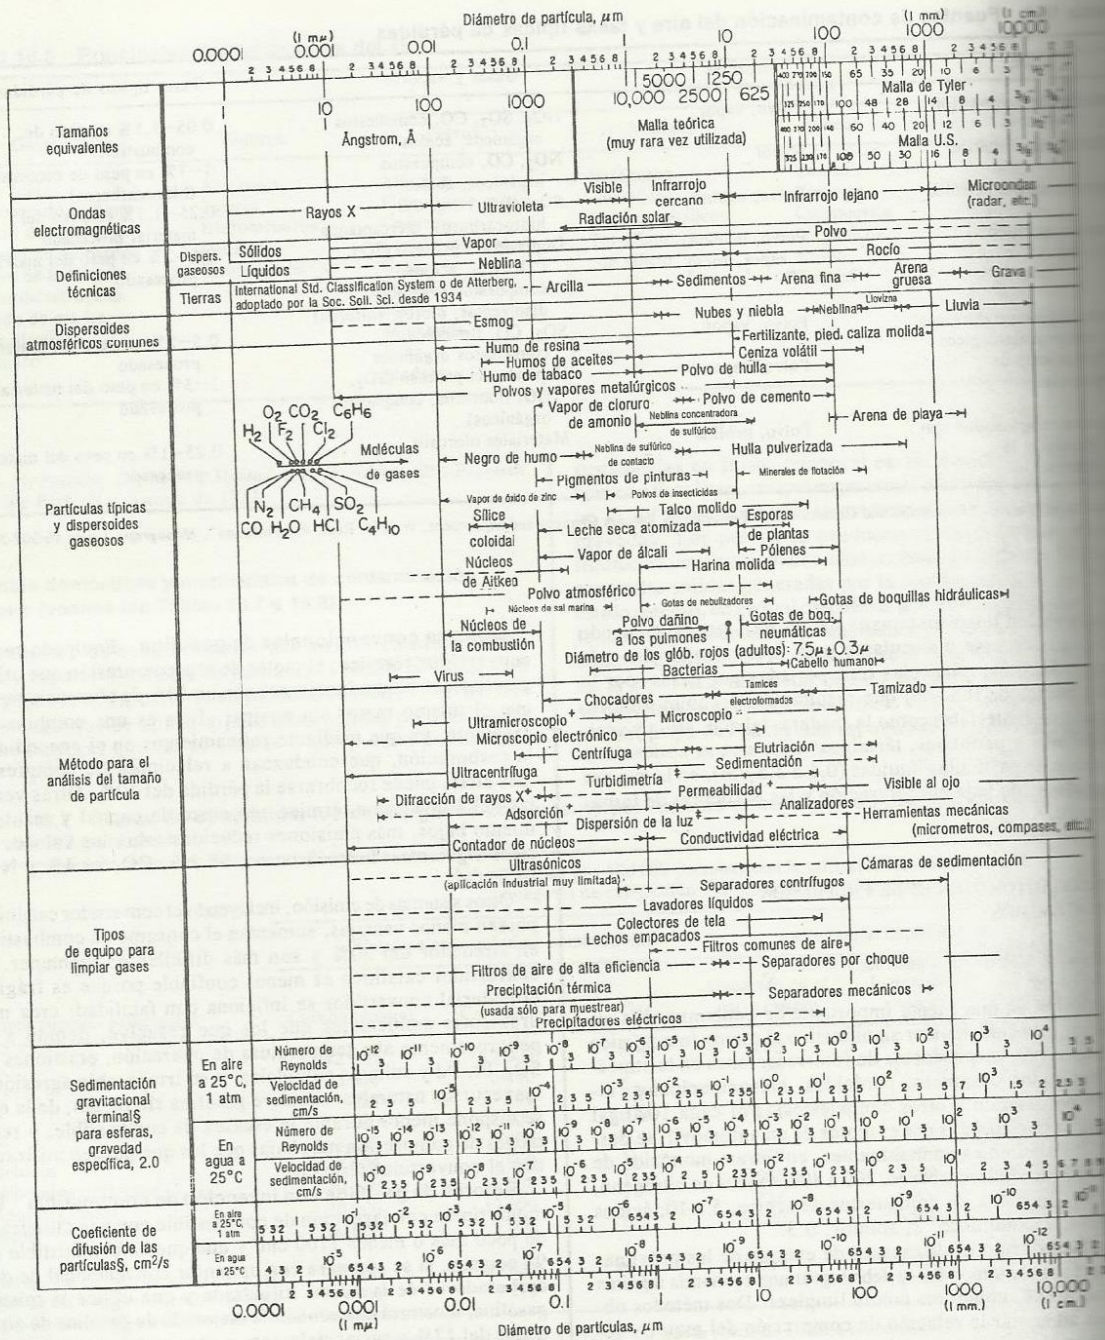 Diámetro de partícula, μm
(I mμ) (I mm.) (I cm.)
0.0001 0.001 0.01 0.1 1 10 100 1000 10,000
2 3 4 5 6 8 2 3 4 5 6 8 2 3 4 5 6 8 2 3 4 5 6 8 2 3 4 5 6 8 2 3 4 5 6 8 2 3 4 5 6 8 2 3 4 5 6 8
Tamaños
equivalentes
1 10 100 1000
Ångstrom, Å
5000 1250
10,000 2500 625
Malla teórica
(muy rara vez utilizada)
400 270 200 150 65 35 20 10 6 3
Malla de Tyler
325 250 170 100 48 28 14 8 4
400 270 200 140 60 40 20 12 6 3
Malla U.S.
325 230 170 100 50 30 16 8 4
Ondas
electromagnéticas
Rayos X
Ultravioleta
Visible
Infrarrojo
cercano
Infrarrojo lejano
Microondas
(radar, etc.)
Radiación solar
Definiciones
técnicas
Dispers.
gaseosos
Sólidos
Vapor
Polvo
Líquidos
Neblina
Rocío
Tierras
International Std. Classification System o de Atterberg,
adoptado por la Soc. Soil. Sci. desde 1934
Arcilla
Sedimentos
Arena fina
Arena
gruesa
Grava
Dispersoides
atmosféricos comunes
Esmog
Nubes y niebla
Neblina
Llovizna
Lluvia
Partículas típicas
y dispersoides
gaseosos
Humo de resina
Fertilizante, pied. caliza molida
Humos de aceites
Ceniza volátil
Humo de tabaco
Polvo de hulla
Polvos y vapores metalúrgicos
Polvo de cemento
Vapor de cloruro
de amonio
Neblina concentradora
de sulfúrico
Arena de playa
O₂ CO₂ C₆H₆
H₂ F₂ Cl₂
Moléculas
de gases
N₂ CH₄ SO₂
CO H₂O HCl C₄H₁₀
Negro de humo
Neblina de sulfúrico
de contacto
Hulla pulverizada
Pigmentos de pinturas
Minerales de flotación
Vapor de óxido de zinc
Polvos de insecticidas
Sílice
coloidal
Talco molido
Leche seca atomizada
Esporas
de plantas
Núcleos
de Aitken
Vapor de álcali
Pólenes
Harina molida
Polvo atmosférico
Núcleos de sal marina
Gotas de nebulizadores
Gotas de boquillas hidráulicas
Núcleos de
la combustión
Polvo dañino
a los pulmones
Gotas de boq.
neumáticas
Diámetro de los glób. rojos (adultos): 7.5μ±0.3μ
Virus
Bacterias
Cabello humano
Método para el
análisis del tamaño
de partícula
Chocadores
Tamices
electroformados
Tamizado
Ultramicroscopio⁺
Microscopio
Microscopio electrónico
Centrífuga
Elutriación
Ultracentrífuga
Sedimentación
Turbidimetría‡
Difracción de rayos X⁺
Permeabilidad⁺
Visible al ojo
Adsorción⁺
Dispersión de la luz‡
Analizadores
Herramientas mecánicas
(micrometros, compases, etc.)
Contador de núcleos
Conductividad eléctrica
Tipos
de equipo para
limpiar gases
Ultrasónicos
(aplicación industrial muy limitada)
Cámaras de sedimentación
Separadores centrífugos
Lavadores líquidos
Colectores de tela
Lechos empacados
Filtros comunes de aire
Filtros de aire de alta eficiencia
Separadores por choque
Precipitación térmica
(usada sólo para muestrear)
Separadores mecánicos
Precipitadores eléctricos
Sedimentación
gravitacional
terminal§
para esferas,
gravedad
específica, 2.0
En aire
a 25°C,
1 atm
Número de
Reynolds
10⁻¹² 10⁻¹¹ 10⁻¹⁰ 10⁻⁹ 10⁻⁸ 10⁻⁷ 10⁻⁶ 10⁻⁵ 10⁻⁴ 10⁻³ 10⁻² 10⁻¹ 10⁰ 10¹ 10² 10³ 10⁴
Velocidad de
sedimentación,
cm/s
10⁻⁵ 10⁻⁴ 10⁻³ 10⁻² 10⁻¹ 10⁰ 10¹ 10² 10³
En
agua a
25°C
Número de
Reynolds
10⁻¹⁵ 10⁻¹⁴ 10⁻¹³ 10⁻¹² 10⁻¹¹ 10⁻¹⁰ 10⁻⁹ 10⁻⁸ 10⁻⁷ 10⁻⁶ 10⁻⁵ 10⁻⁴ 10⁻³ 10⁻² 10⁻¹ 10⁰ 10¹ 10² 10³ 10⁴
Velocidad de
sedimentación,
cm/s
10⁻¹⁰ 10⁻⁹ 10⁻⁸ 10⁻⁷ 10⁻⁶ 10⁻⁵ 10⁻⁴ 10⁻³ 10⁻² 10⁻¹ 10⁰ 10¹
Coeficiente de
difusión de las
partículas§, cm²/s
En aire
a 25°C,
1 atm
10⁻¹ 10⁻² 10⁻³ 10⁻⁴ 10⁻⁵ 10⁻⁶ 10⁻⁷ 10⁻⁸ 10⁻⁹ 10⁻¹⁰
En agua
a 25°C
10⁻⁵ 10⁻⁶ 10⁻⁷ 10⁻⁸ 10⁻⁹ 10⁻¹⁰ 10⁻¹¹ 10⁻¹²
2 3 4 5 6 8 2 3 4 5 6 8 2 3 4 5 6 8 2 3 4 5 6 8 2 3 4 5 6 8 2 3 4 5 6 8 2 3 4 5 6 8 2 3 4 5 6 8
0.0001 0.001 0.01 0.1 1 10 100 1000 10,000
(I mμ) (I mm.) (I cm.)
Diámetro de partículas, μm